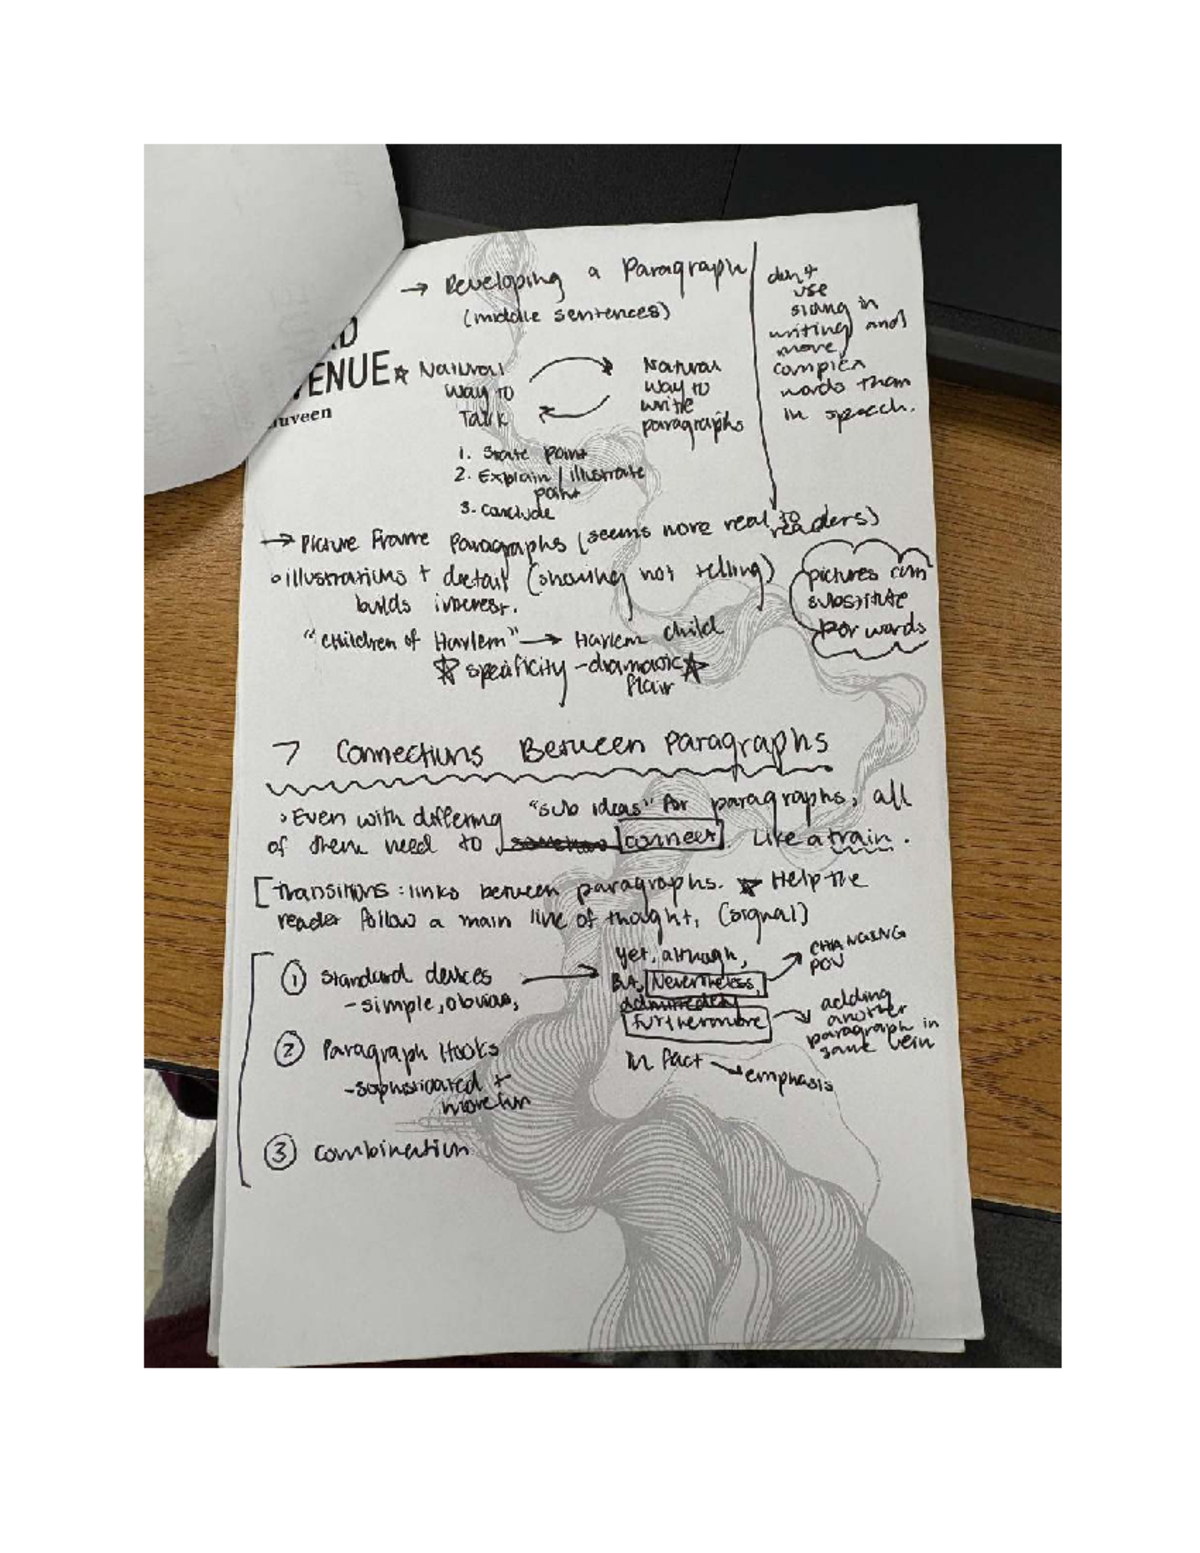 → Developing a Paragraph
(middle sentences)
don't
use
slang in
writing and
more
complex
words than
in speech.
ENUE
uveen
☆ Natural
way to
Talk
Natural
way to
write
paragraphs
1. State point
2. Explain / illustrate
point
3. Conclude
→ Picture Frame Paragraphs (seems more real to
readers)
◦ illustrations + detail (showing not telling)
builds interest.
pictures can
substitute
for words
"Children of Harlem" → Harlem child
☆ specificity - dramatic ☆
flair
7 Connections Between Paragraphs
Even with differing "sub ideas" for paragraphs, all
of them need to connect. Like a train.
[Transitions: links between paragraphs. ☆ Help the
reader follow a main line of thought, (signal)
① Standard devices →
- simple, obvious,
yet, although,
But, Nevertheless,
admittedly
furthermore
in fact → emphasis
CHANGING
POV
adding
another
paragraph in
same vein
② Paragraph Hooks
- sophisticated +
more fun
③ combination